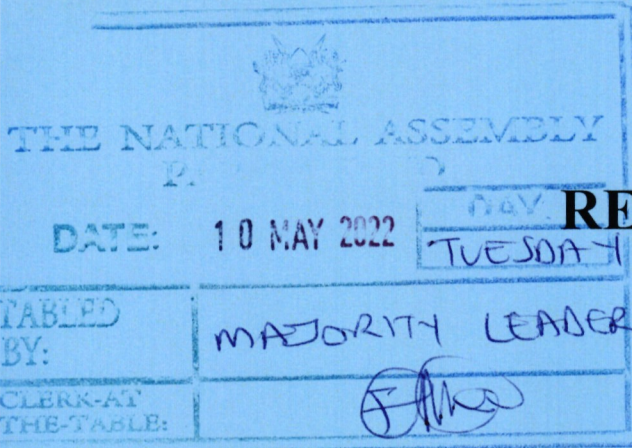 THE NATIONAL ASSEMBLY
DATE: 10 MAY 2022 DAY. RE
TUESDAY
TABLED BY: MAJORITY LEADER
CLERK-AT THE-TABLE: